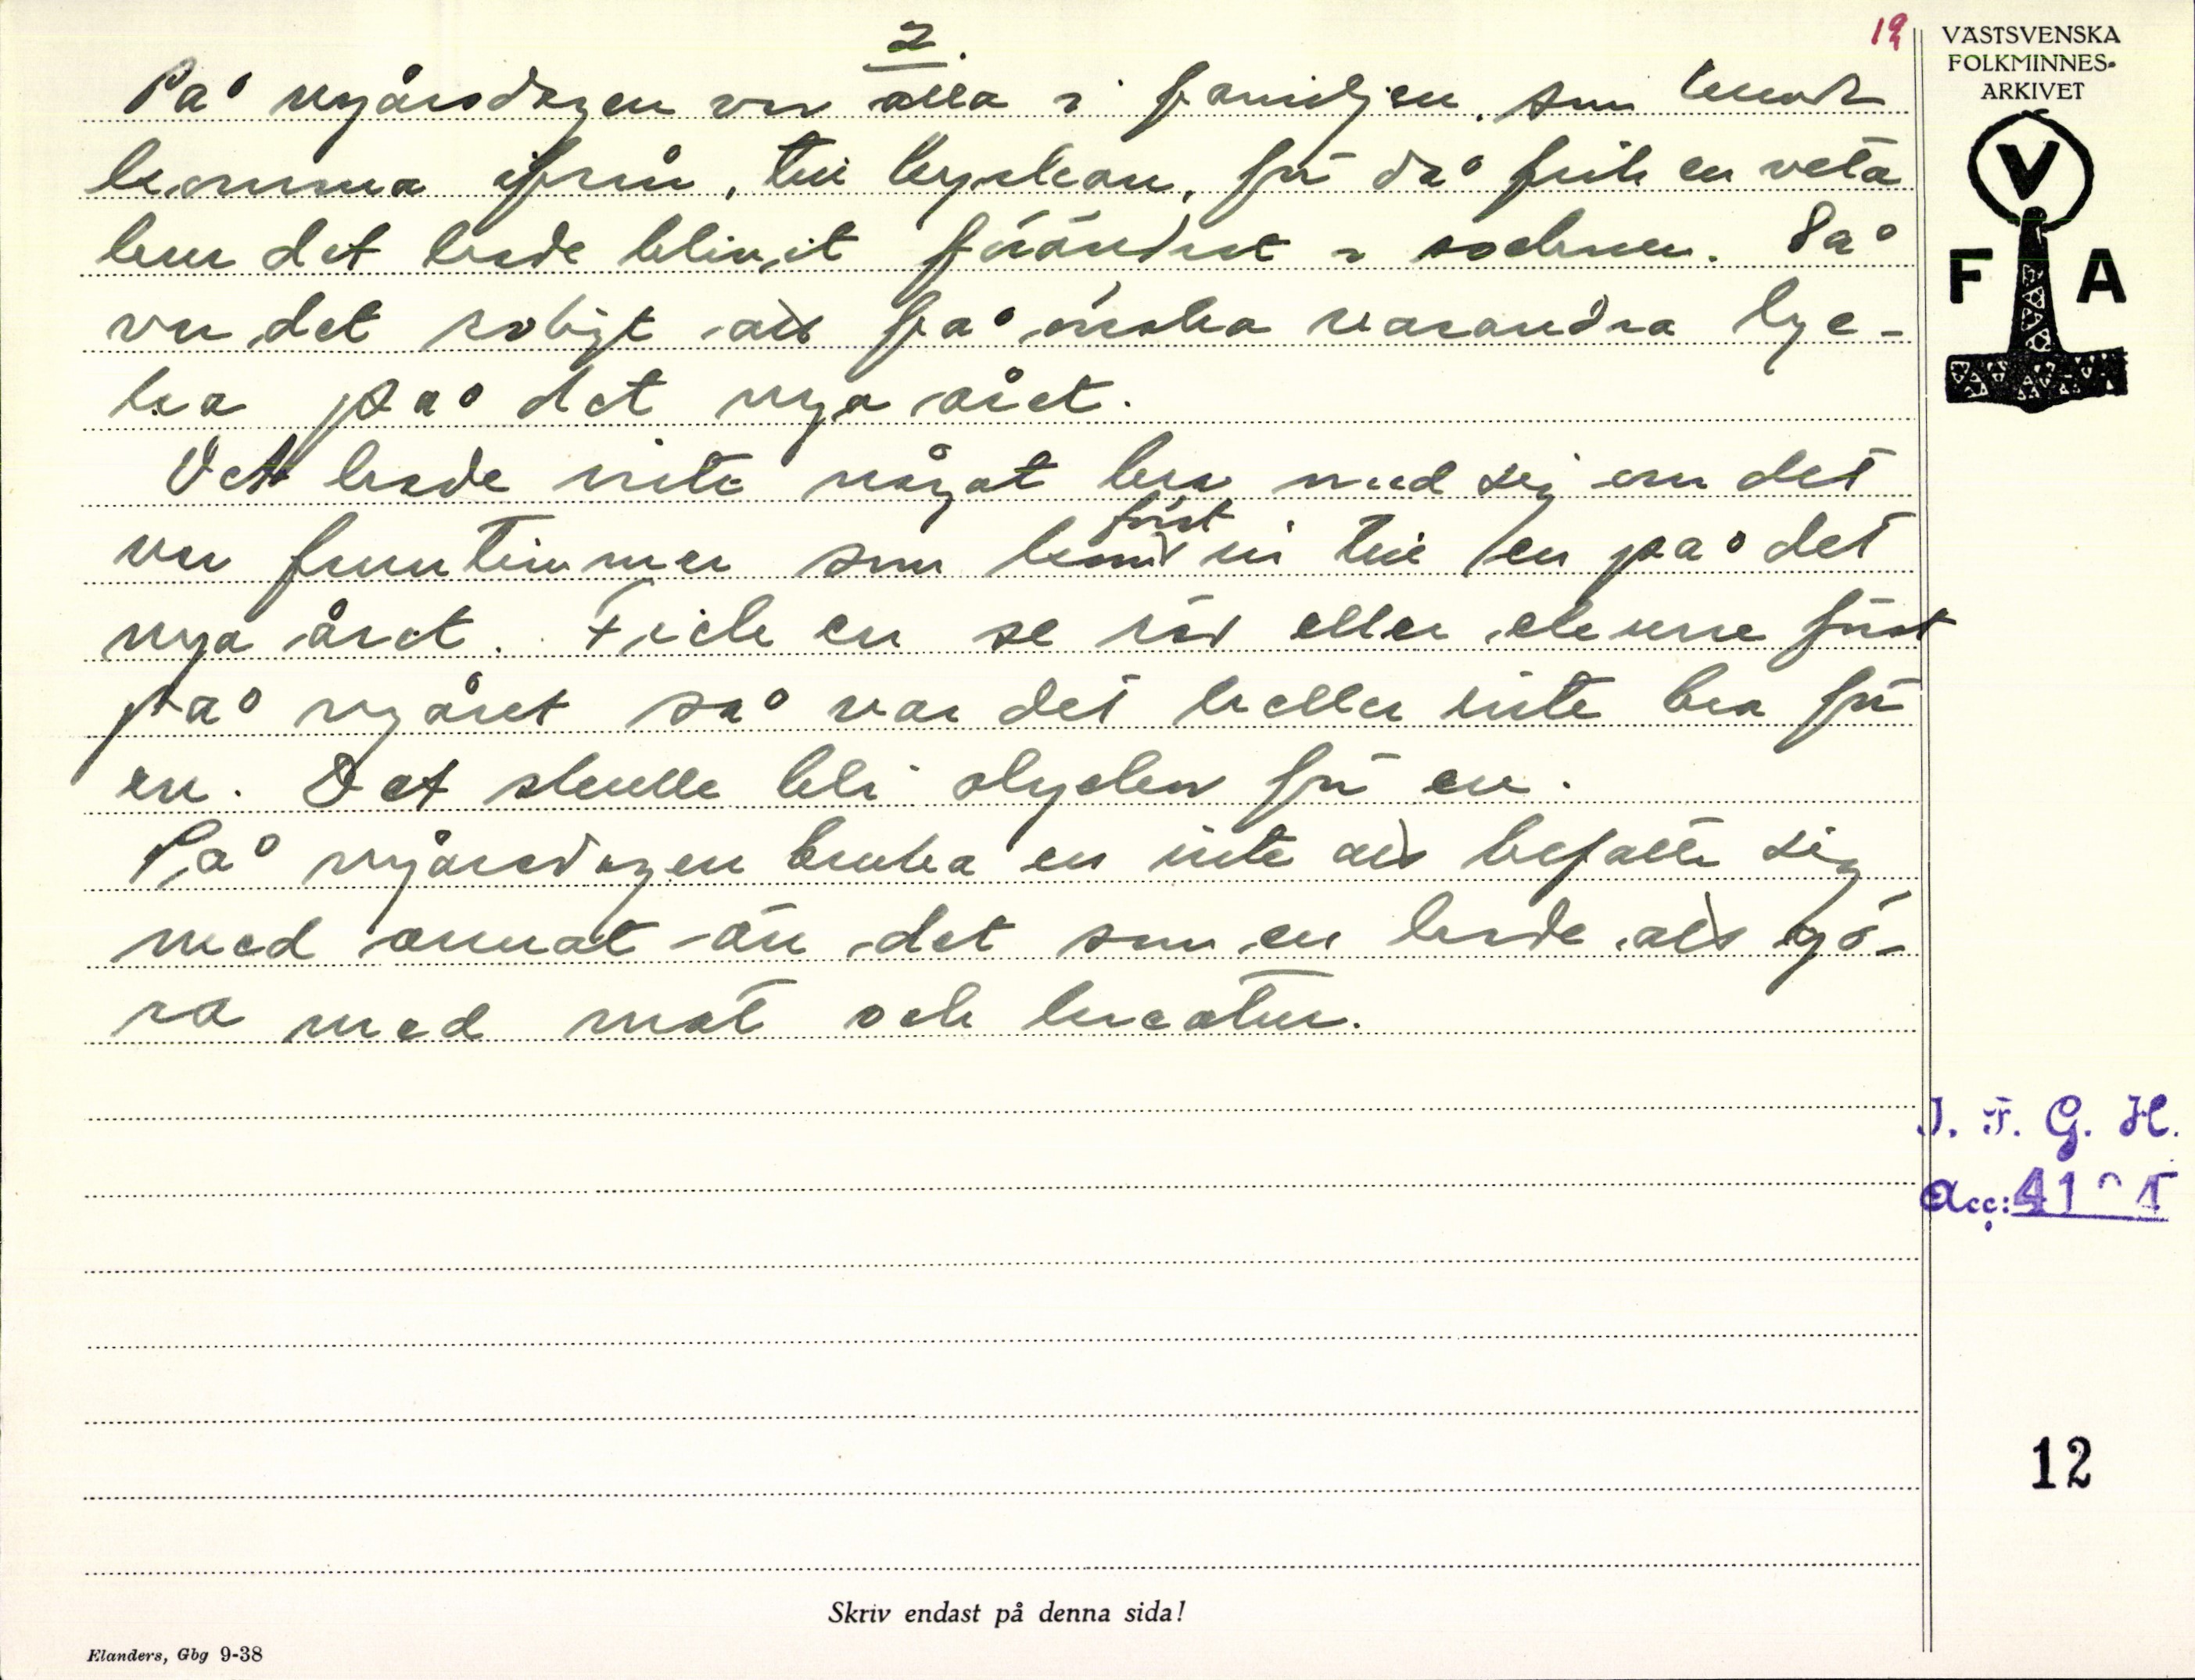 2.
12
På nyårsdagen var alla i familjen, som kunde
komma ifrån, till kyrkan, för då fick en veta
hur det hade blivit förändrat i socknen. Så
var det roligt att få önska varandra lyc-
ka på det nya året.
Det hade inte något bra med sig om det
var fruntimmer som kom först in till en på det
nya året. Fick en se räv eller ekorre först
på nyåret så var det heller inte bra för
en. Det skulle bli olycka för en.
På nyårsdagen bruka en inte att befatta sig
med annat än det som en hade att gö-
ra med mat och kreatur.
VÄSTSVENSKA
FOLKMINNES-
ARKIVET
V
F A
I. F. G. H.
Acc:
12
Skriv endast på denna sida!
Elanders, Gbg 9-38